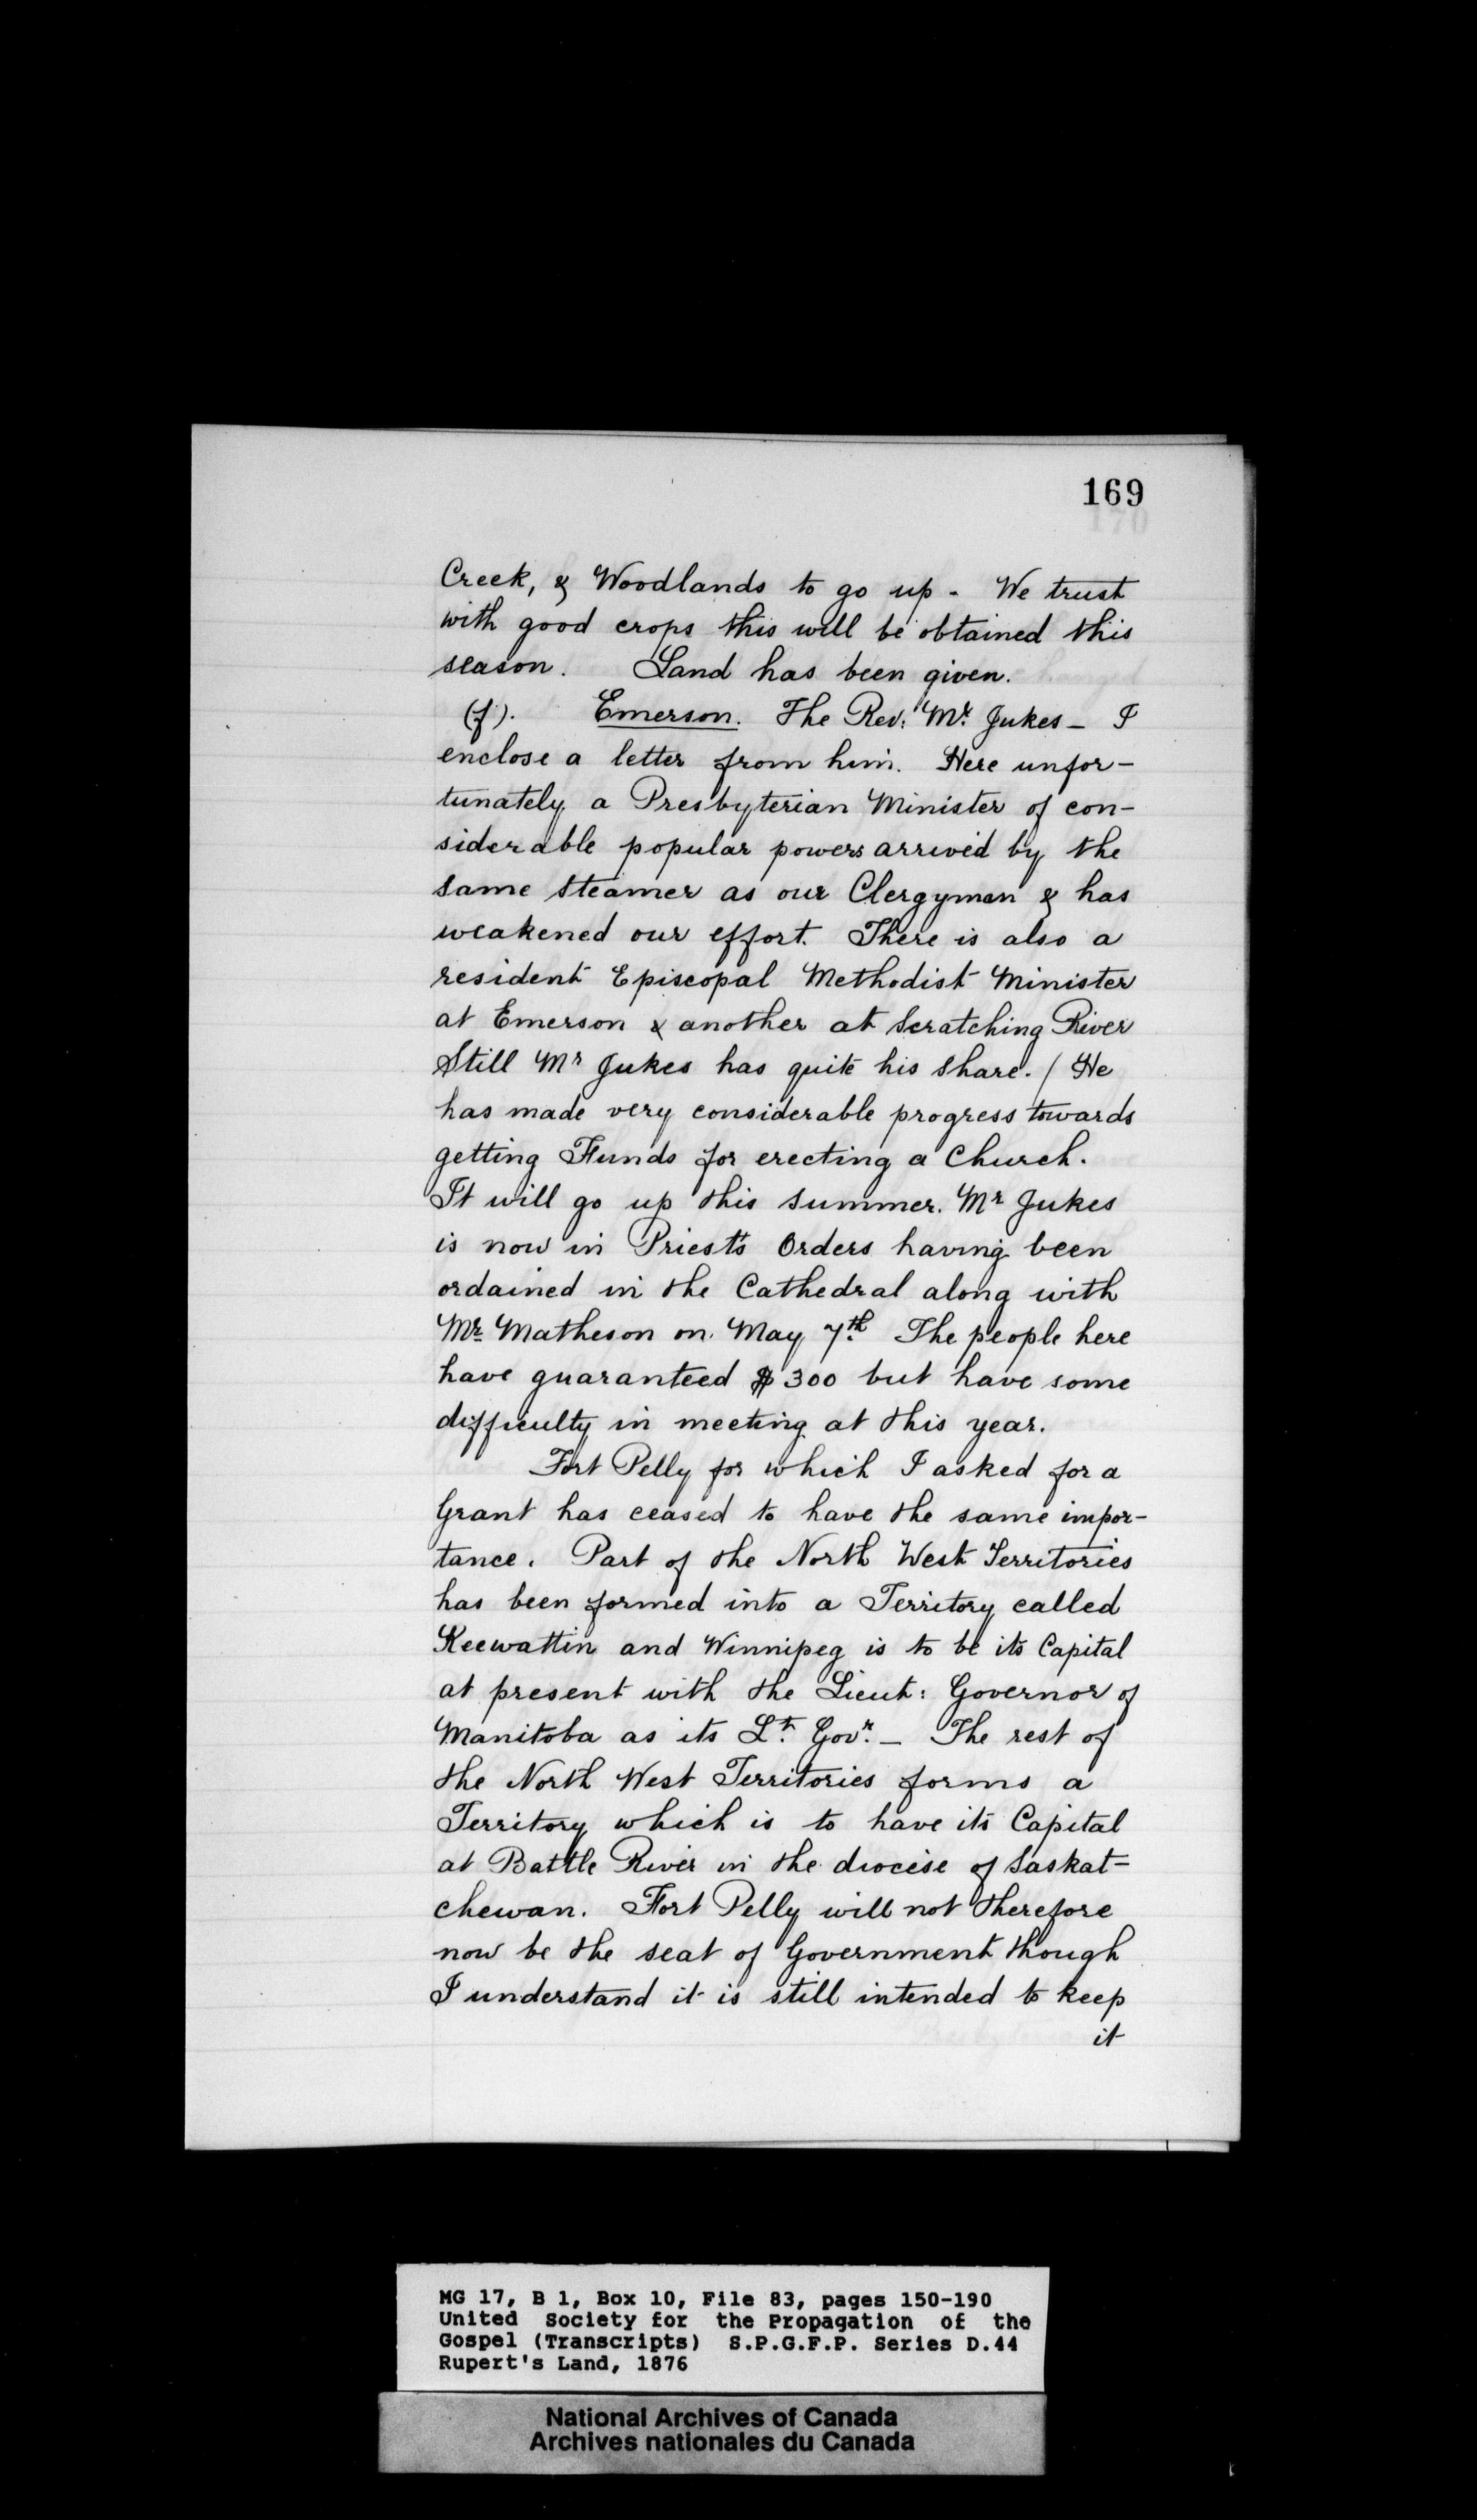 169
Creek, & Woodlands to go up - We trust
with good crops this will be obtained this
season. Land has been given.
(f). Emerson. The Rev: Mr. Jukes - I
enclose a letter from him. Here unfor-
tunately a Presbyterian Minister of con-
siderable popular powers arrived by the
same steamer as our Clergyman & has
weakened our effort. There is also a
resident Episcopal Methodist Minister
at Emerson & another at Scratching River
Still Mr Jukes has quite his share. / He
has made very considerable progress towards
getting Funds for erecting a Church.
It will go up this summer. Mr Jukes
is now in Priest's Orders having been
ordained in the Cathedral along with
Mr. Matheson on May 7th. The people here
have guaranteed $300 but have some
difficulty in meeting at this year.
Fort Pelly for which I asked for a
Grant has ceased to have the same impor-
tance. Part of the North West Territories
has been formed into a Territory called
Keewattin and Winnipeg is to be its Capital
at present with the Lieut: Governor of
Manitoba as its Lt. Govr. - The rest of
the North West Territories forms a
Territory which is to have its Capital
at Battle River in the diocese of Saskat=
chewan. Fort Pelly will not therefore
now be the seat of Government though
I understand it is still intended to keep
it
MG 17, B 1, Box 10, File 83, pages 150-190
United Society for the Propagation of the
Gospel (Transcripts) S.P.G.F.P. Series D.44
Rupert's Land, 1876
National Archives of Canada
Archives nationales du Canada